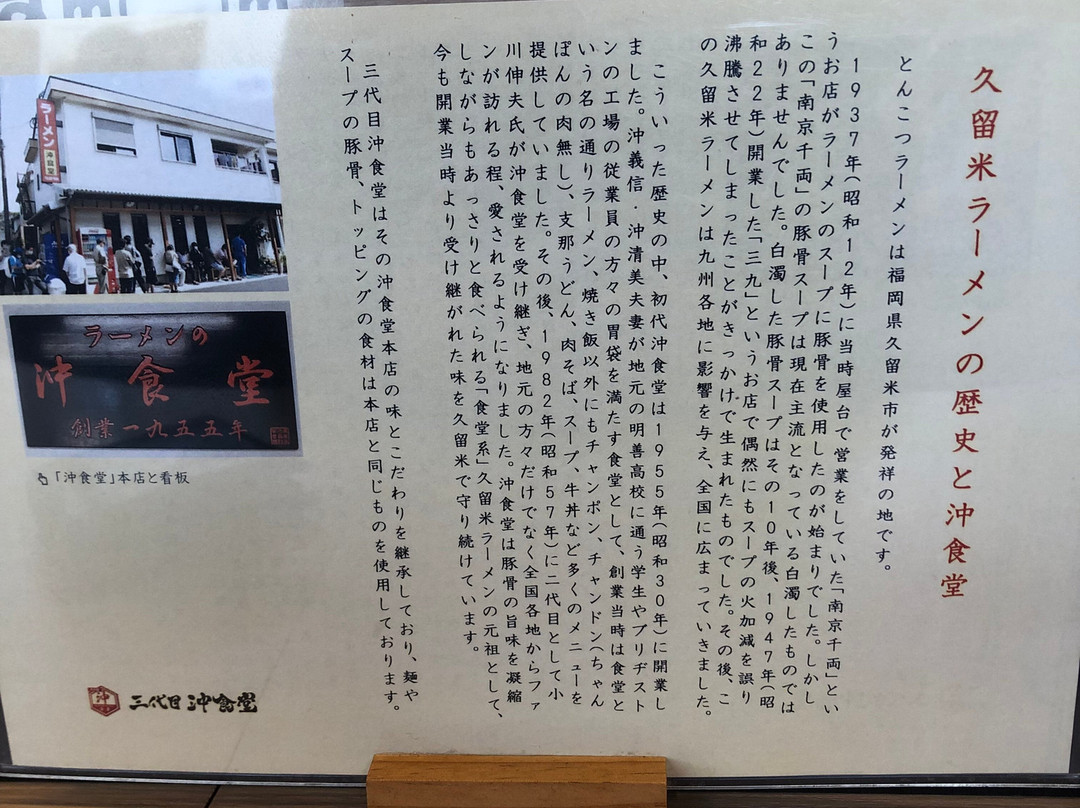 久留米ラーメンの歴史と沖食堂
とんこつラーメンは福岡県久留米市が発祥の地です。
1937年(昭和12年)に当時屋台で営業をしていた「南京千両」とい
うお店がラーメンのスープに豚骨を使用したのが始まりでした。しかし
この「南京千両」の豚骨スープは現在主流となっている白濁したものでは
ありませんでした。白濁した豚骨スープはその10年後、1947年(昭
和22年)開業した「三九」というお店で偶然にもスープの火加減を誤り
沸騰させてしまったことがきっかけで生まれたものでした。その後、こ
の久留米ラーメンは九州各地に影響を与え、全国に広まっていきました。
こういった歴史の中、初代沖食堂は1955年(昭和30年)に開業し
ました。沖義信・沖清美夫妻が地元の明善高校に通う学生やブリヂスト
ンの工場の従業員の方々の胃袋を満たす食堂として、創業当時は食堂と
いう名の通りラーメン、焼き飯以外にもチャンポン、チャンドン(ちゃん
ぽんの肉無し)、支那うどん、肉そば、スープ、牛丼など多くのメニューを
提供していました。その後、1982年(昭和57年)に二代目として小
川伸夫氏が沖食堂を受け継ぎ、地元の方々だけでなく全国各地からファ
ンが訪れる程、愛されるようになりました。沖食堂は豚骨の旨味を凝縮
しながらもあっさりと食べられる「食堂系」久留米ラーメンの元祖として、
今も開業当時より受け継がれた味を久留米で守り続けています。
三代目沖食堂はその沖食堂本店の味とこだわりを継承しており、麺や
スープの豚骨、トッピングの食材は本店と同じものを使用しております。
ラーメン 沖食堂
ラーメンの
沖食堂
創業一九五五年
「沖食堂」本店と看板
沖
三代目 沖食堂